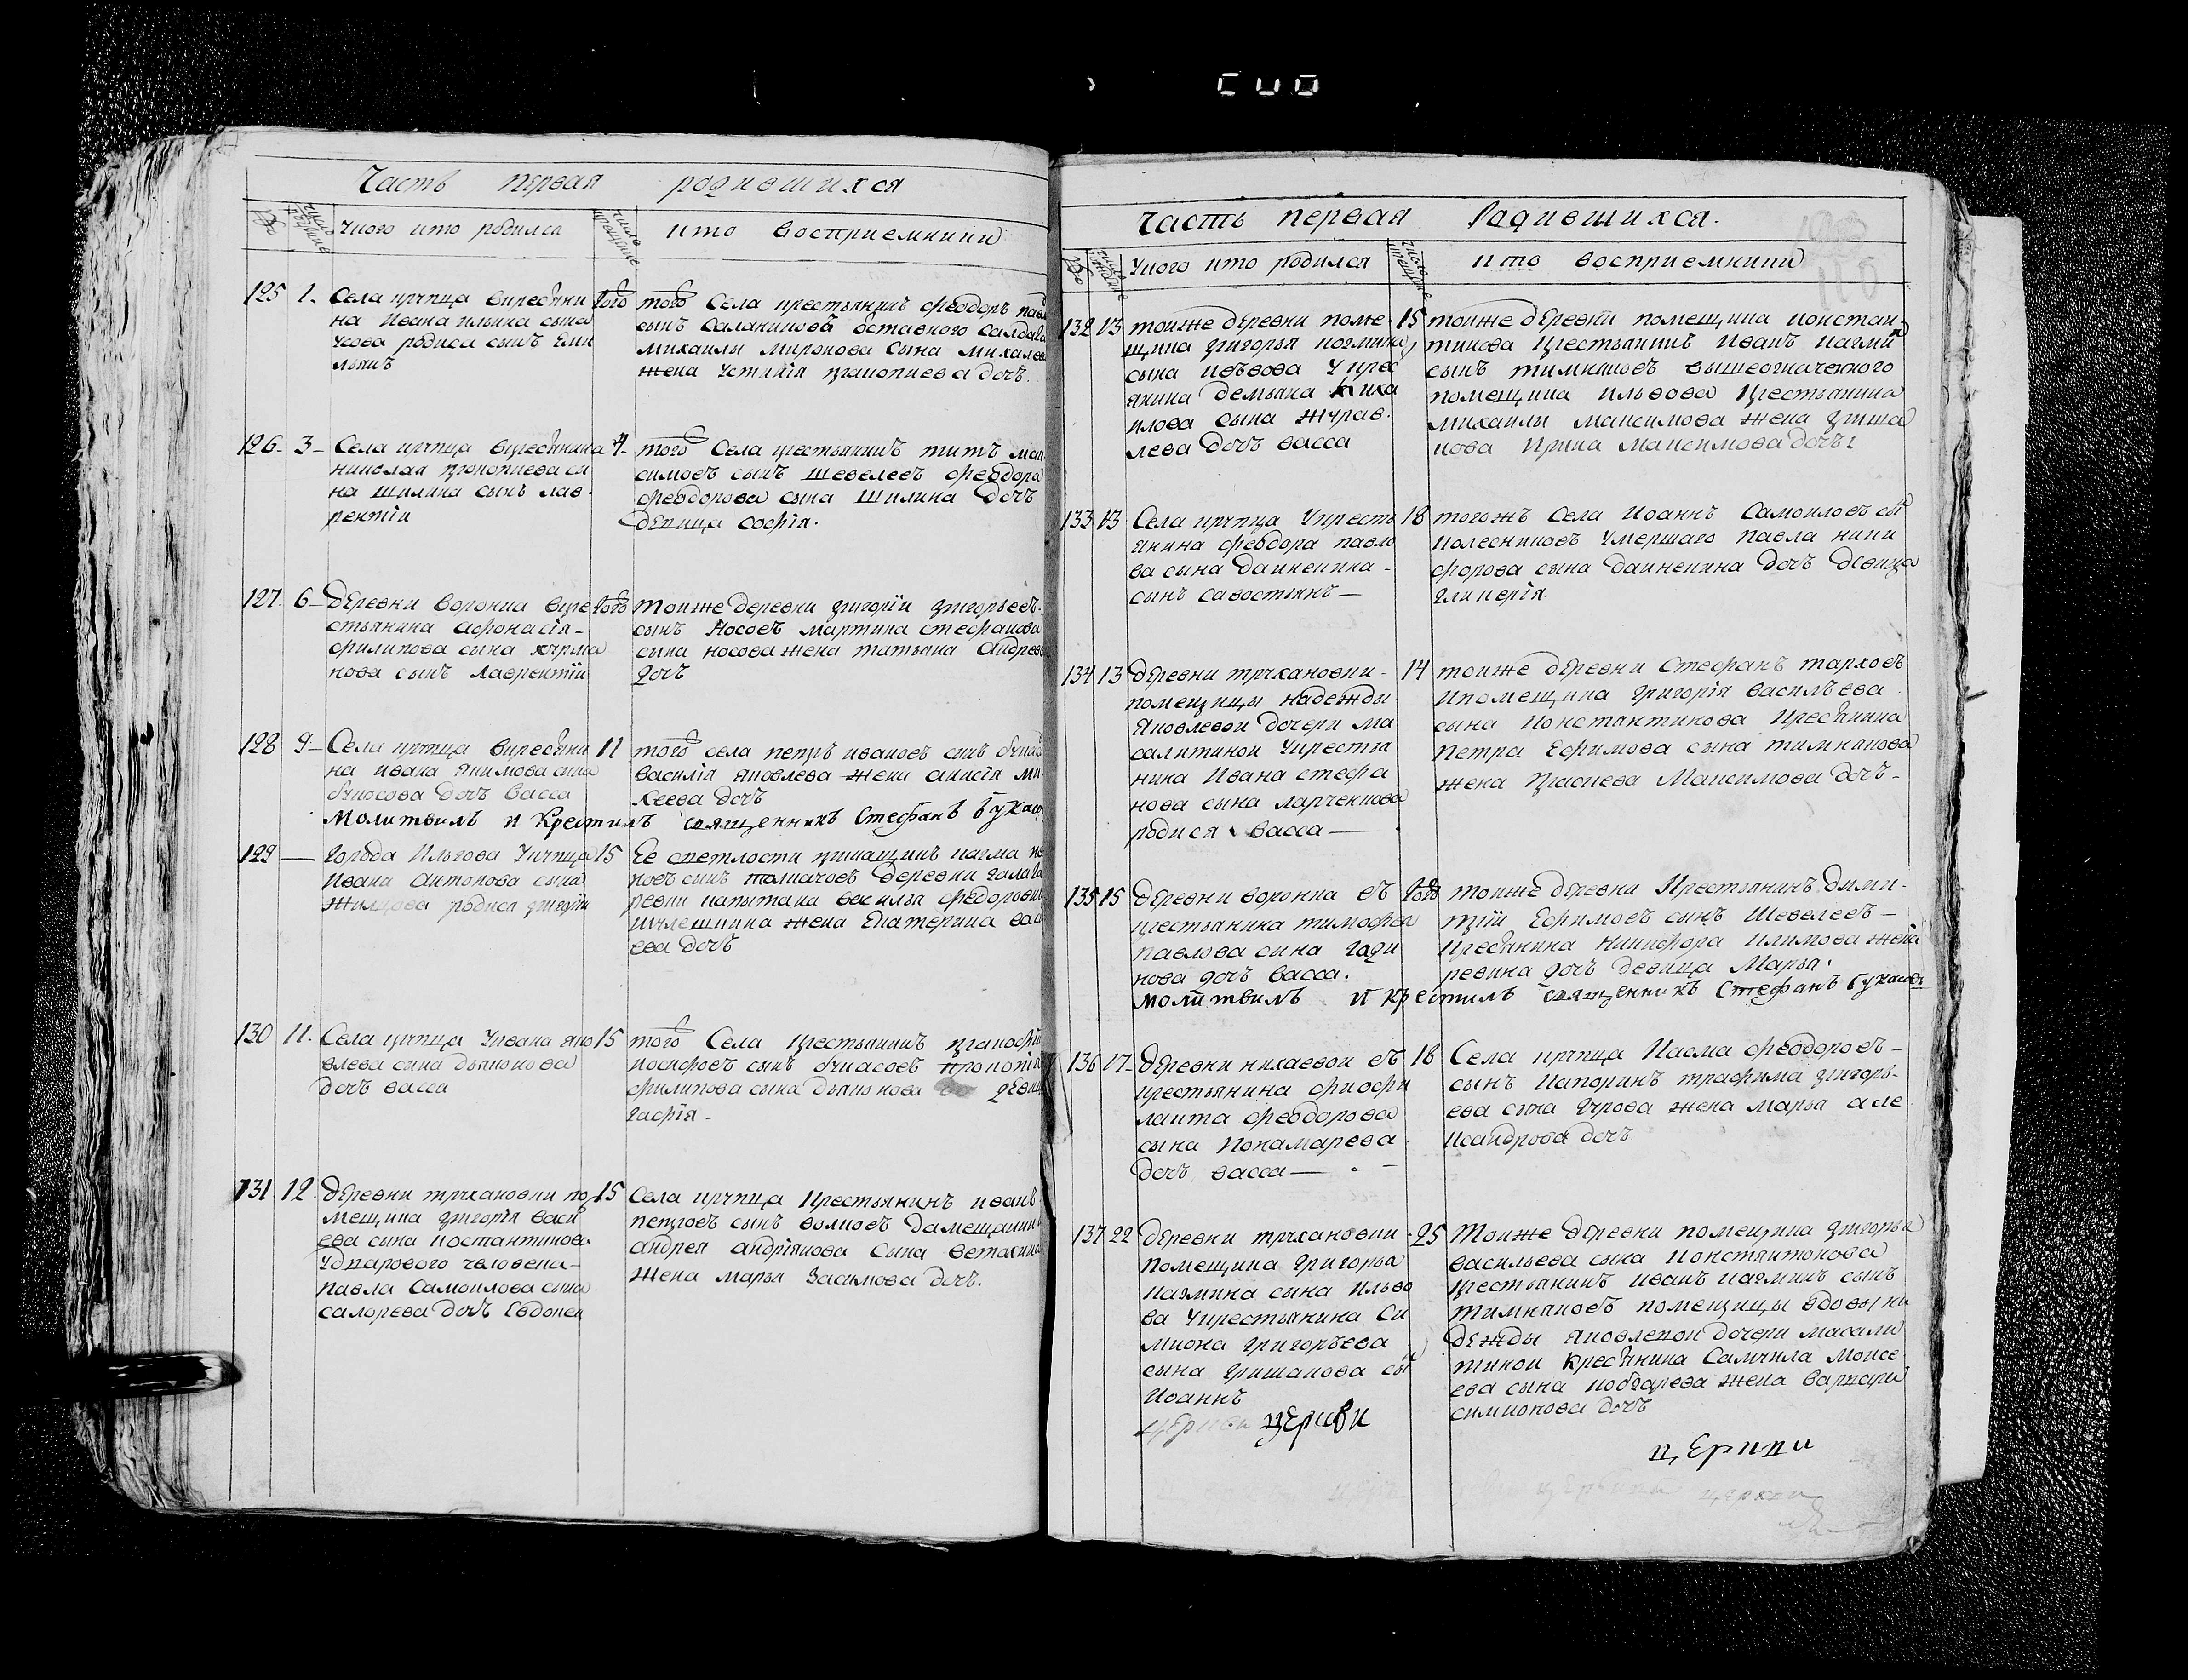 Часть первая родившихся
№ число рождение Укого кто родился число крещение кто восприемники
125 1. Села крупца вкресьяни
на Ивана Ильина сына
Усова родися сынъ Еми
льянъ
того того Села крестьянинъ феодоръ
сынъ Саланиковъ отставного салдата
михаилы миронова сына михалева
жена Устинія прокопиева дочъ.
126 3 Села крупца вкресьянина
николая прокопиева сы
на шилина сынъ лав
рентіи
4 того Села крестьянинъ титъ мак
симовъ сынъ шевелевъ феодора
феодорова сына Шилина дочъ
девица софія.
127 6 деревни воронка вкре
стьянина афонасія
филипова сына
нова сынъ лаврентіи
того тоиже деревни григорїи григорьевъ
сынъ Носовъ мартина стефанова
сына носова жена татьяна Андреева
дочъ
128 9 Села крупца вкресьяни
на ивана якимова сына
букасова дочъ васса
11 того села петръ ивановъ сынъ
василія яковлева жены анисія ми
хеева дочъ
молитвилъ и крестилъ священникъ Стефанъ букасовъ
129 — города Льгова Укупца
Ивана антонова сына
родися григорїи
15 Ее светлости
новъ сынъ толмачовъ деревни
капитана василья федорови
жена Екатерина васи
ева дочъ
130 11. Села крупца Уивана яко
влева сына дьяконова
дочъ васса
15 того Села крестьянинъ прокофїи
иосифовъ сынъ букасовъ прокопїя
филипова сына дьяконова девица
гафїя
131 12 деревни трухановки по
мещика григорїя васи
ева сына костантинова
Удварового человека
павла Самоилова сына
салорева дочъ Евдокея
15 Села крупца Крестьянинъ иванъ
петровъ сынъ волковъ да мещанина
андрея андрїянова сына ветахина
жена марья Засимова дочъ.
Часть первая Родившихся.
110
№ Укого кто родился число крещение кто восприемники
132 13 тоиже деревни поме
щика григорья козмина
сына львова Укрес
янина демьяна миха
илова сына журав
лева дочъ васса
15 тоиже деревни помещика констан
тинова крестьянинъ Иванъ козмин
сынъ тимняковъ вышеозначенного
помещика львова крестьянина
михаилы максимова жена гриша
кова Ирина максимова дочъ
133 13 Села крупца Укрестъ
янина феодора павло
ва сына даинекина
сынъ савостьянъ
18 тогожъ Села Иоаннъ Самоиловъ сы
колесниковъ Умершаго павла ники
форова сына даинекина дочъ девица
гликерія.
134 13 деревни трухановки
помещицы надежды
Яковлевои дочери ма
салитинои Укрестья
нина Ивана стефа
нова сына ларченкова
родися васса
14 тоиже деревни Стефанъ тарховъ
Ипомещика григорїя васильева
сына Константинова Кресьянина
петра Ефимова сына тимнякова
жена праскева Максимова дочъ
135 15 деревни воронка въ
крестьянина тимофея
павлова сына гади
нова дочъ васса.
того тоиже деревни Крестьянинъ Дими
трїи Ефимовъ сынъ Шевелевъ
кресьянина никифора климова жена
дочъ девица Марья.
молитвилъ и крестилъ священникъ Стефанъ букасовъ
136 17 деревни нилаевои въ
крестьянина фиофи
лакта феодорова
сына Пономарева
дочъ васса
18 Села крупца Касма феодоровъ
сынъ Капоринъ трафима григорь
ева сына гурова жена марья але
ксандрова дочъ
137 22 деревни трухановки
помещика григорья
казмина сына льво
ва Укрестьянина Си
миона григорьева
сына гришакова сы
Иоаннъ
25 Тоиже деревни помещика григорья
васильева сына Константинова
крестьянинъ иванъ казминъ сынъ
тимняковъ помещицы вдовы на
дежды яковлевои дочери масали
тинои кресьянина Самуила Моисе
ева сына жена варвара
симионова дочъ
церкви церкви
церкви
церкви